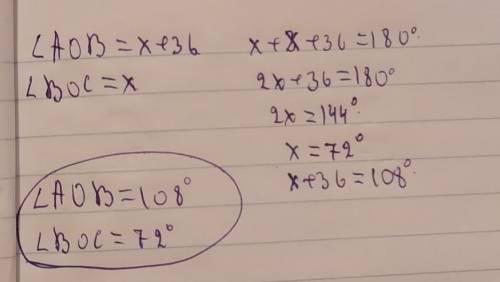 ∠AOB = x+36
∠BOC = x
x+x+36=180°
2x+36=180°
2x=144°
x=72°
x+36=108°
∠AOB=108°
∠BOC=72°